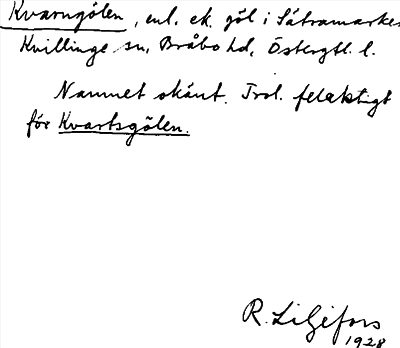 Kvarngölen, enl. ek. göl i Sätramarken
Kvillinge sn, Bråbo hd, Östergtl. l.
Namnet okänt. Trol. felaktigt
för Kvartsgölen.
R. Liljefors
1928